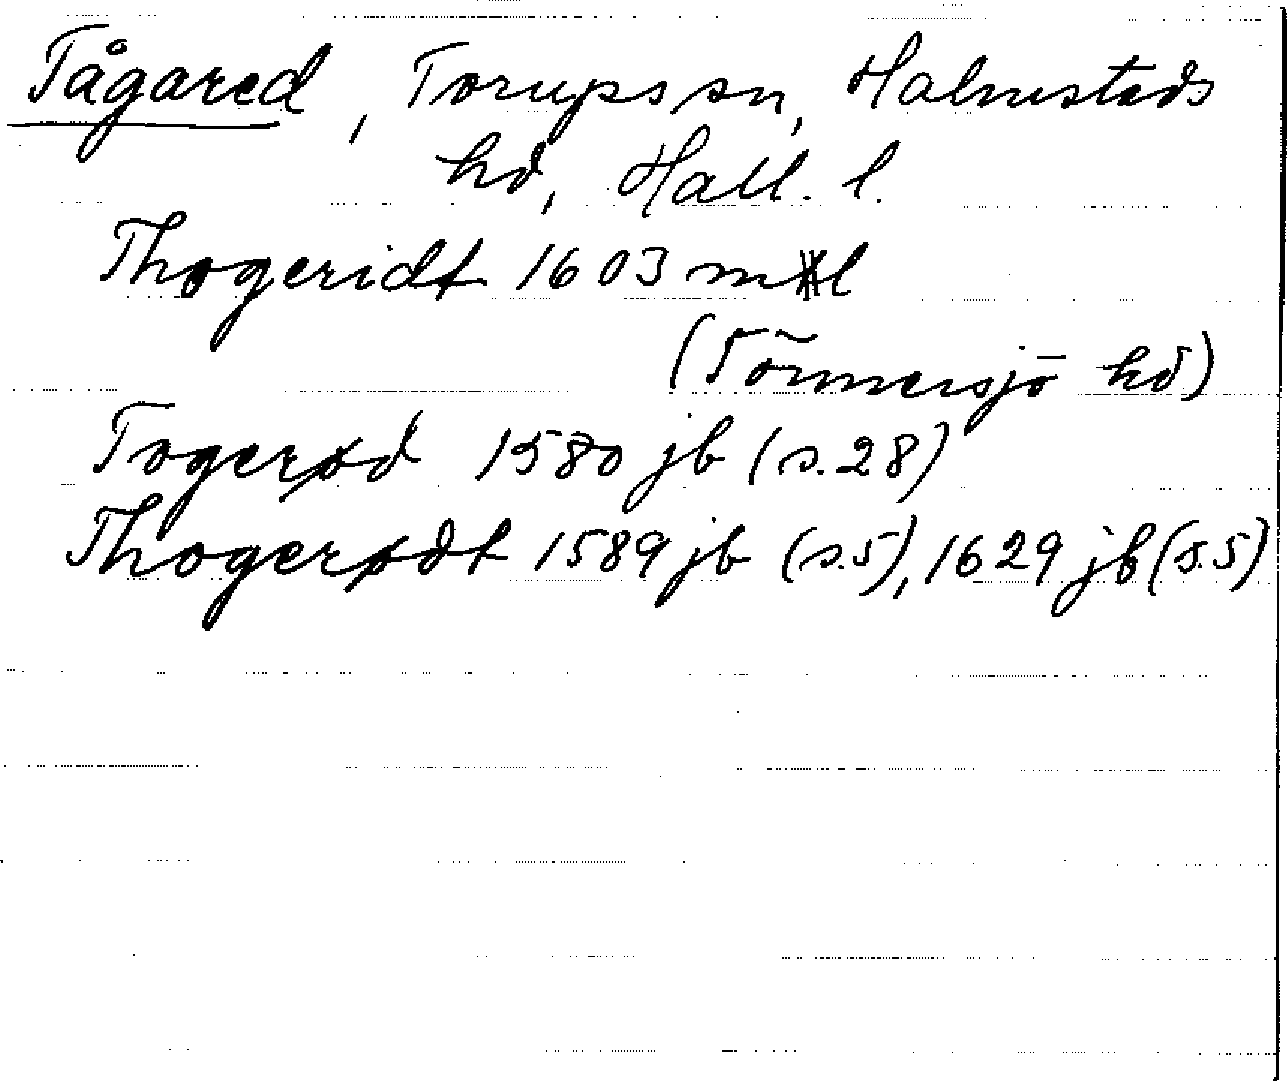 Tågared, Torups sn, Halmstads
hd, Hall. l.
Thogeridt 1603 mtl
(Tönnersjö hd)
Togerød 1580 jb (s. 28)
Thogerødt 1589 jb (s.5), 1629 jb (s.5)